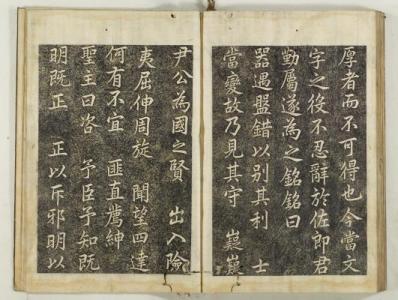 厚者而不可得也今當文
字之役不忍辭於佐郎君
勤屬遂為之銘銘曰
器遇盤錯以別其利　士
當變故乃見其守　嶷嶷
尹公為國之賢　出入險
夷屈伸周旋　聞望四達
何有不宜　匪直薦紳
聖主曰咨　予臣予知既
明既正　正以斥邪明以